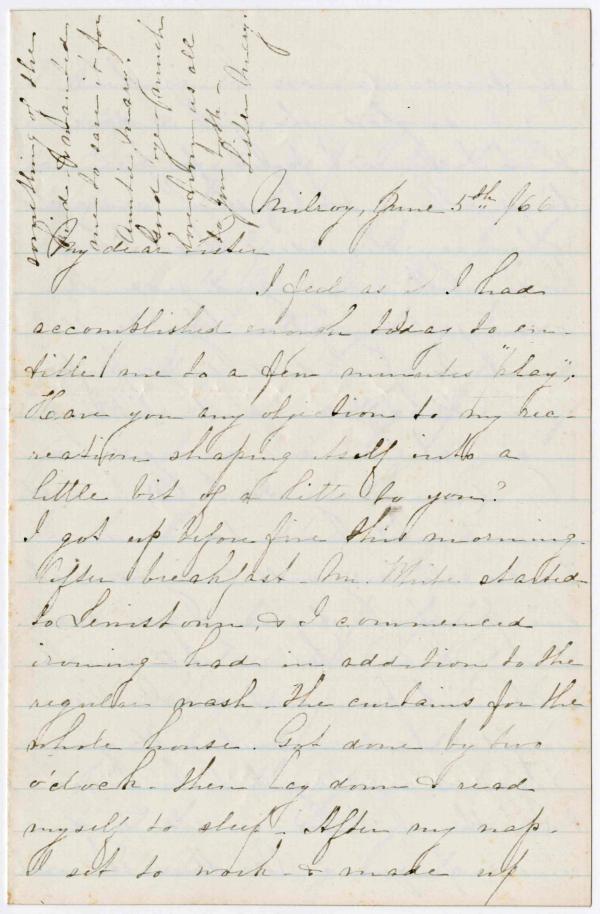 something of the
kind. I wanted
me to save it for
Auntie Mary.
And oh, much
love from us all
to you both
Sister Mary.
Milroy, June 5th /66
My dear sister
I feel as if I had
accomplished enough today to en-
title me to a few minutes "play".
Have you any objection to my rec-
reation shaping itself into a
little bit of a lette to you?
I got up before five this morning.
After breakfast Mr. White started
to Lewistown, & I commenced
ironing had in addition to the
regular wash the curtains for the
whole house. Got done by two
o'clock then lay down & read
myself to sleep. After my nap
I set to work & made up